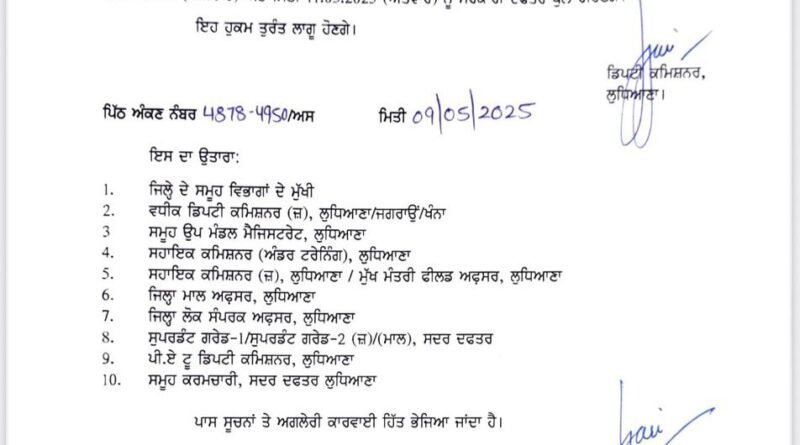 11.05.2025 (ਐਤਵਾਰ) ਨੂੰ ਸਰਕਾਰੀ ਦਫਤਰ ਖੁੱਲੇ ਰਹਿਣਗੇ।
ਇਹ ਹੁਕਮ ਤੁਰੰਤ ਲਾਗੂ ਹੋਣਗੇ।
ਡਿਪਟੀ ਕਮਿਸ਼ਨਰ,
ਲੁਧਿਆਣਾ।
ਪਿੱਠ ਅੰਕਣ ਨੰਬਰ 4878-4950/ਅਸ ਮਿਤੀ 09/05/2025
ਇਸ ਦਾ ਉਤਾਰਾ:
1. ਜਿਲ੍ਹੇ ਦੇ ਸਮੂਹ ਵਿਭਾਗਾਂ ਦੇ ਮੁੱਖੀ
2. ਵਧੀਕ ਡਿਪਟੀ ਕਮਿਸ਼ਨਰ (ਜ਼), ਲੁਧਿਆਣਾ/ਜਗਰਾਉਂ/ਖੰਨਾ
3 ਸਮੂਹ ਉਪ ਮੰਡਲ ਮੈਜਿਸਟਰੇਟ, ਲੁਧਿਆਣਾ
4. ਸਹਾਇਕ ਕਮਿਸ਼ਨਰ (ਅੰਡਰ ਟਰੇਨਿੰਗ), ਲੁਧਿਆਣਾ
5. ਸਹਾਇਕ ਕਮਿਸ਼ਨਰ (ਜ਼), ਲੁਧਿਆਣਾ / ਮੁੱਖ ਮੰਤਰੀ ਫੀਲਡ ਅਫ਼ਸਰ, ਲੁਧਿਆਣਾ
6. ਜਿਲ੍ਹਾ ਮਾਲ ਅਫ਼ਸਰ, ਲੁਧਿਆਣਾ
7. ਜਿਲ੍ਹਾ ਲੋਕ ਸੰਪਰਕ ਅਫ਼ਸਰ, ਲੁਧਿਆਣਾ
8. ਸੁਪਰਡੰਟ ਗਰੇਡ-1/ਸੁਪਰਡੰਟ ਗਰੇਡ-2 (ਜ਼)/(ਮਾਲ), ਸਦਰ ਦਫਤਰ
9. ਪੀ.ਏ ਟੂ ਡਿਪਟੀ ਕਮਿਸ਼ਨਰ, ਲੁਧਿਆਣਾ
10. ਸਮੂਹ ਕਰਮਚਾਰੀ, ਸਦਰ ਦਫਤਰ ਲੁਧਿਆਣਾ
ਪਾਸ ਸੂਚਨਾਂ ਤੇ ਅਗਲੇਰੀ ਕਾਰਵਾਈ ਹਿੱਤ ਭੇਜਿਆ ਜਾਂਦਾ ਹੈ।